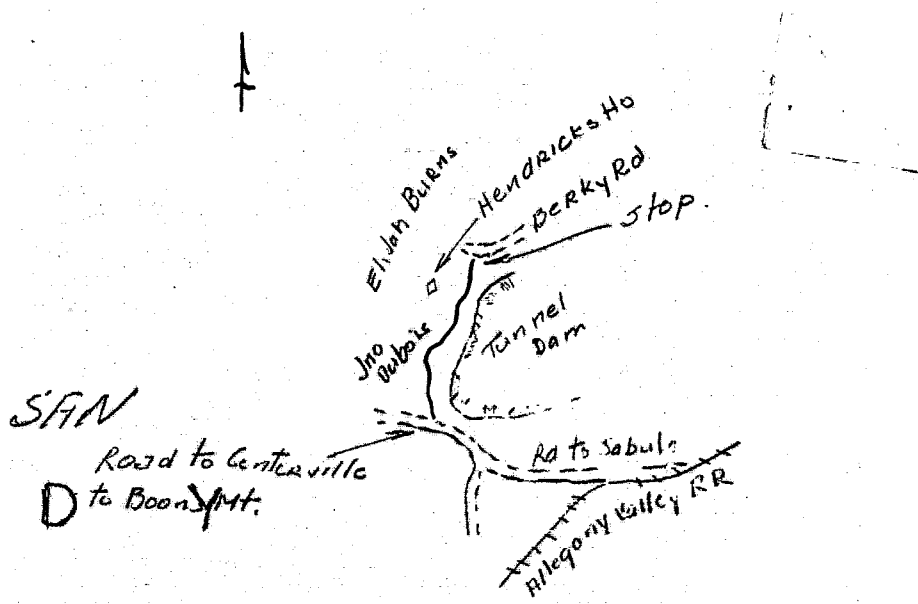 Elijah Burns
Hendricks Ho
Berky Rd
Stop.
Jno
Dubois
Tunnel
Dam
SAN
Road to Centerville
D to Boons Y Mt.
Rd to Sabula
Allegony Valley RR